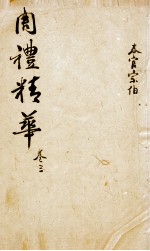 春官宗伯
周禮精華 卷三